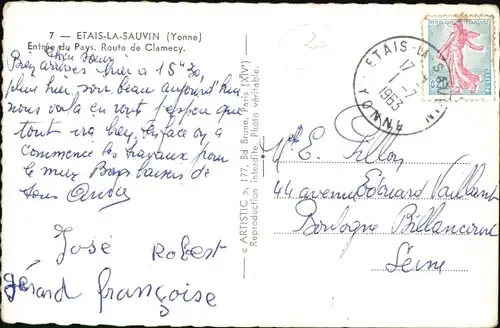 7 — ETAIS-LA-SAUVIN (Yonne)
Entrée du Pays. Route de Clamecy.
Chère sœur
Bien arrivés hier à 15h30,
pluie hier soir beau aujourd'hui
nous voilà en route j'espère que
tout va bien. Enface on a
commencé les travaux pour
le mur Bons baisers de
tous André
José Robert
Gérard françoise
« ARTISTIC », 177, Bd Brune, Paris (XIVe)
Reproduction interdite. Photo véritable.
ETAIS-LA-SAUVIN
17
1963
YONNE
Mlle E. Fillon
44 avenue Edouard Vaillant
Boulogne Billancourt
Seine